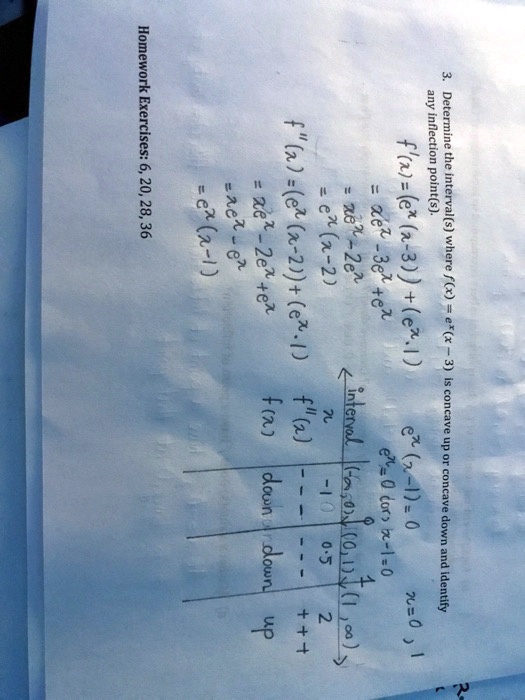 3. Determine the interval(s) where f(x) = eˣ(x − 3) is concave up or concave down and identify
any inflection point(s).
f'(x) = (eˣ(x-3)) + (eˣ.1)
= xeˣ - 3eˣ + eˣ
= xeˣ - 2eˣ
= eˣ(x-2)
f"(x) = (eˣ(x-2)) + (eˣ.1)
= xeˣ - 2eˣ + eˣ
= xeˣ - eˣ
= eˣ(x-1)
eˣ(x-1) = 0 x=0, 1
eˣ=0 (or) x-1=0
0 1
interval (-∞,0) (0,1) (1,∞)
x -1 0.5 2
f"(x) - - - - - - + + +
f(x) down down up
Homework Exercises: 6, 20, 28, 36